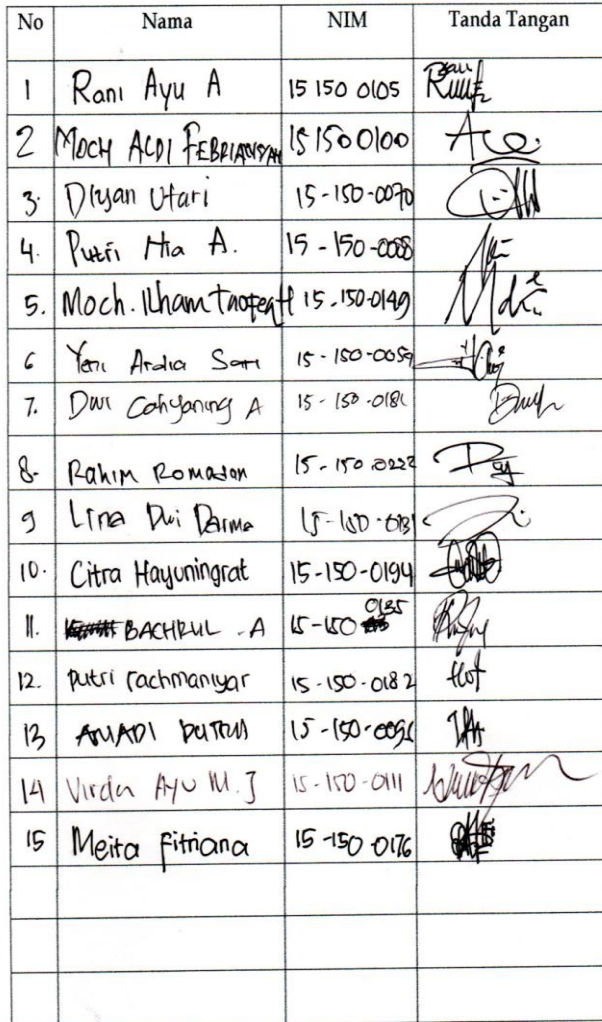 No Nama NIM Tanda Tangan
1 Rani Ayu A 15 150 0105
2 MOCH ALDI FEBRIANSYAH 15 150 0100
3. Diyan Utari 15-150-0070
4. Putri Hia A. 15-150-0088
5. Moch. Ilham 15-150-0149
6 Yeni Ardia Sari 15-150-0059
7. Dwi Cahyaning A 15-150-0181
8. Rahim Romadon 15-150-0222
9 Lina Dwi Darma 15-150-0131
10. Citra Hayuningrat 15-150-0194
11. BACHRUL A 15-150 0135
12. putri rachmaniyar 15-150-0182
13 15-150-0095
14 Virda Ayu M. J 15-150-0111
15 Meita Fitriana 15-150-0176